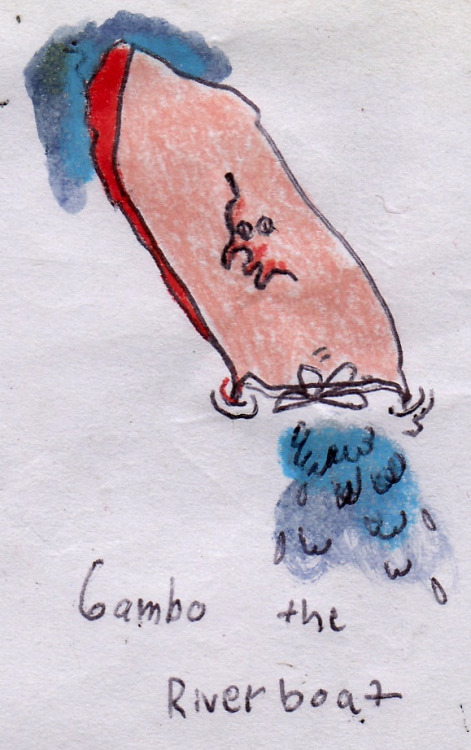 Gambo the
Riverboat